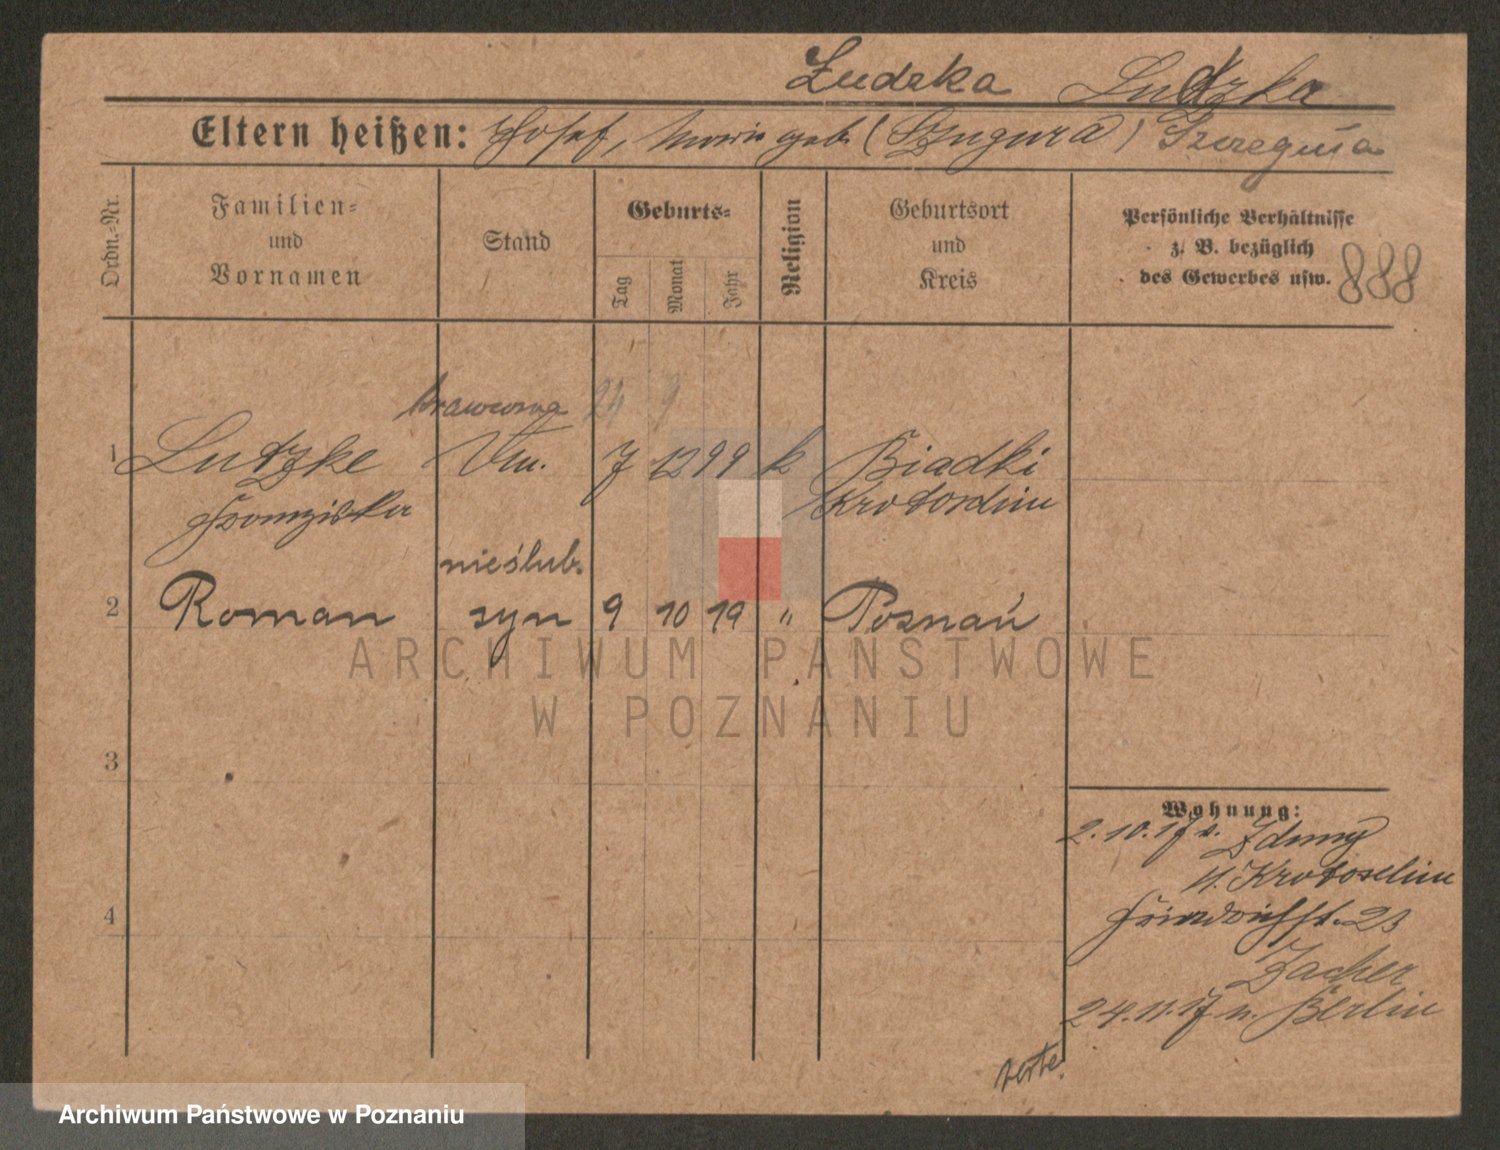 Ludzka Ludzka
Eltern heißen: Josef, Marie geb. (Szugura)
Ordn.-Nr.
Familien-
und
Vornamen
Stand
Geburts-
Tag
Monat
Jahr
Religion
Geburtsort
und
Kreis
Persönliche Verhältnisse
z. B. bezüglich
des Gewerbes usw.
888
krawcowa 24 9
1 Lutzke Vm. 7 12 99 k Biadki
Franziska Krotoschin
nieślub.
2 Roman syn 9 10 19 " Poznań
ARCHIWUM PAŃSTWOWE
W POZNANIU
3
4
Wohnung:
2.10.17 v. Zduny
K. Krotoschin
Friedrichst. 23
Zacher
24.11.17 n. Berlin
verte!
Archiwum Państwowe w Poznaniu